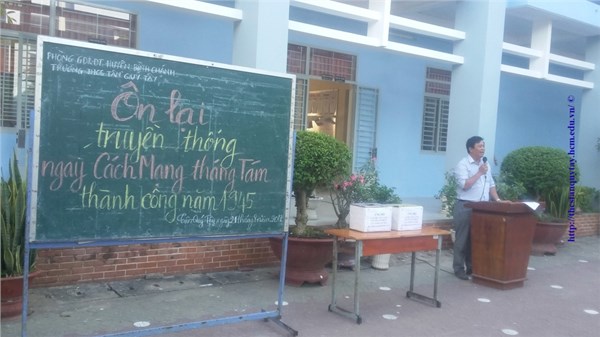 PHÒNG GD&ĐT HUYỆN BÌNH CHÁNH
TRƯỜNG THCS TÂN QUÝ TÂY
Ôn lại
truyền thống
ngày Cách Mạng tháng Tám
thành công năm 1945
http://thcstanquytay.hcm.edu.vn/ ©